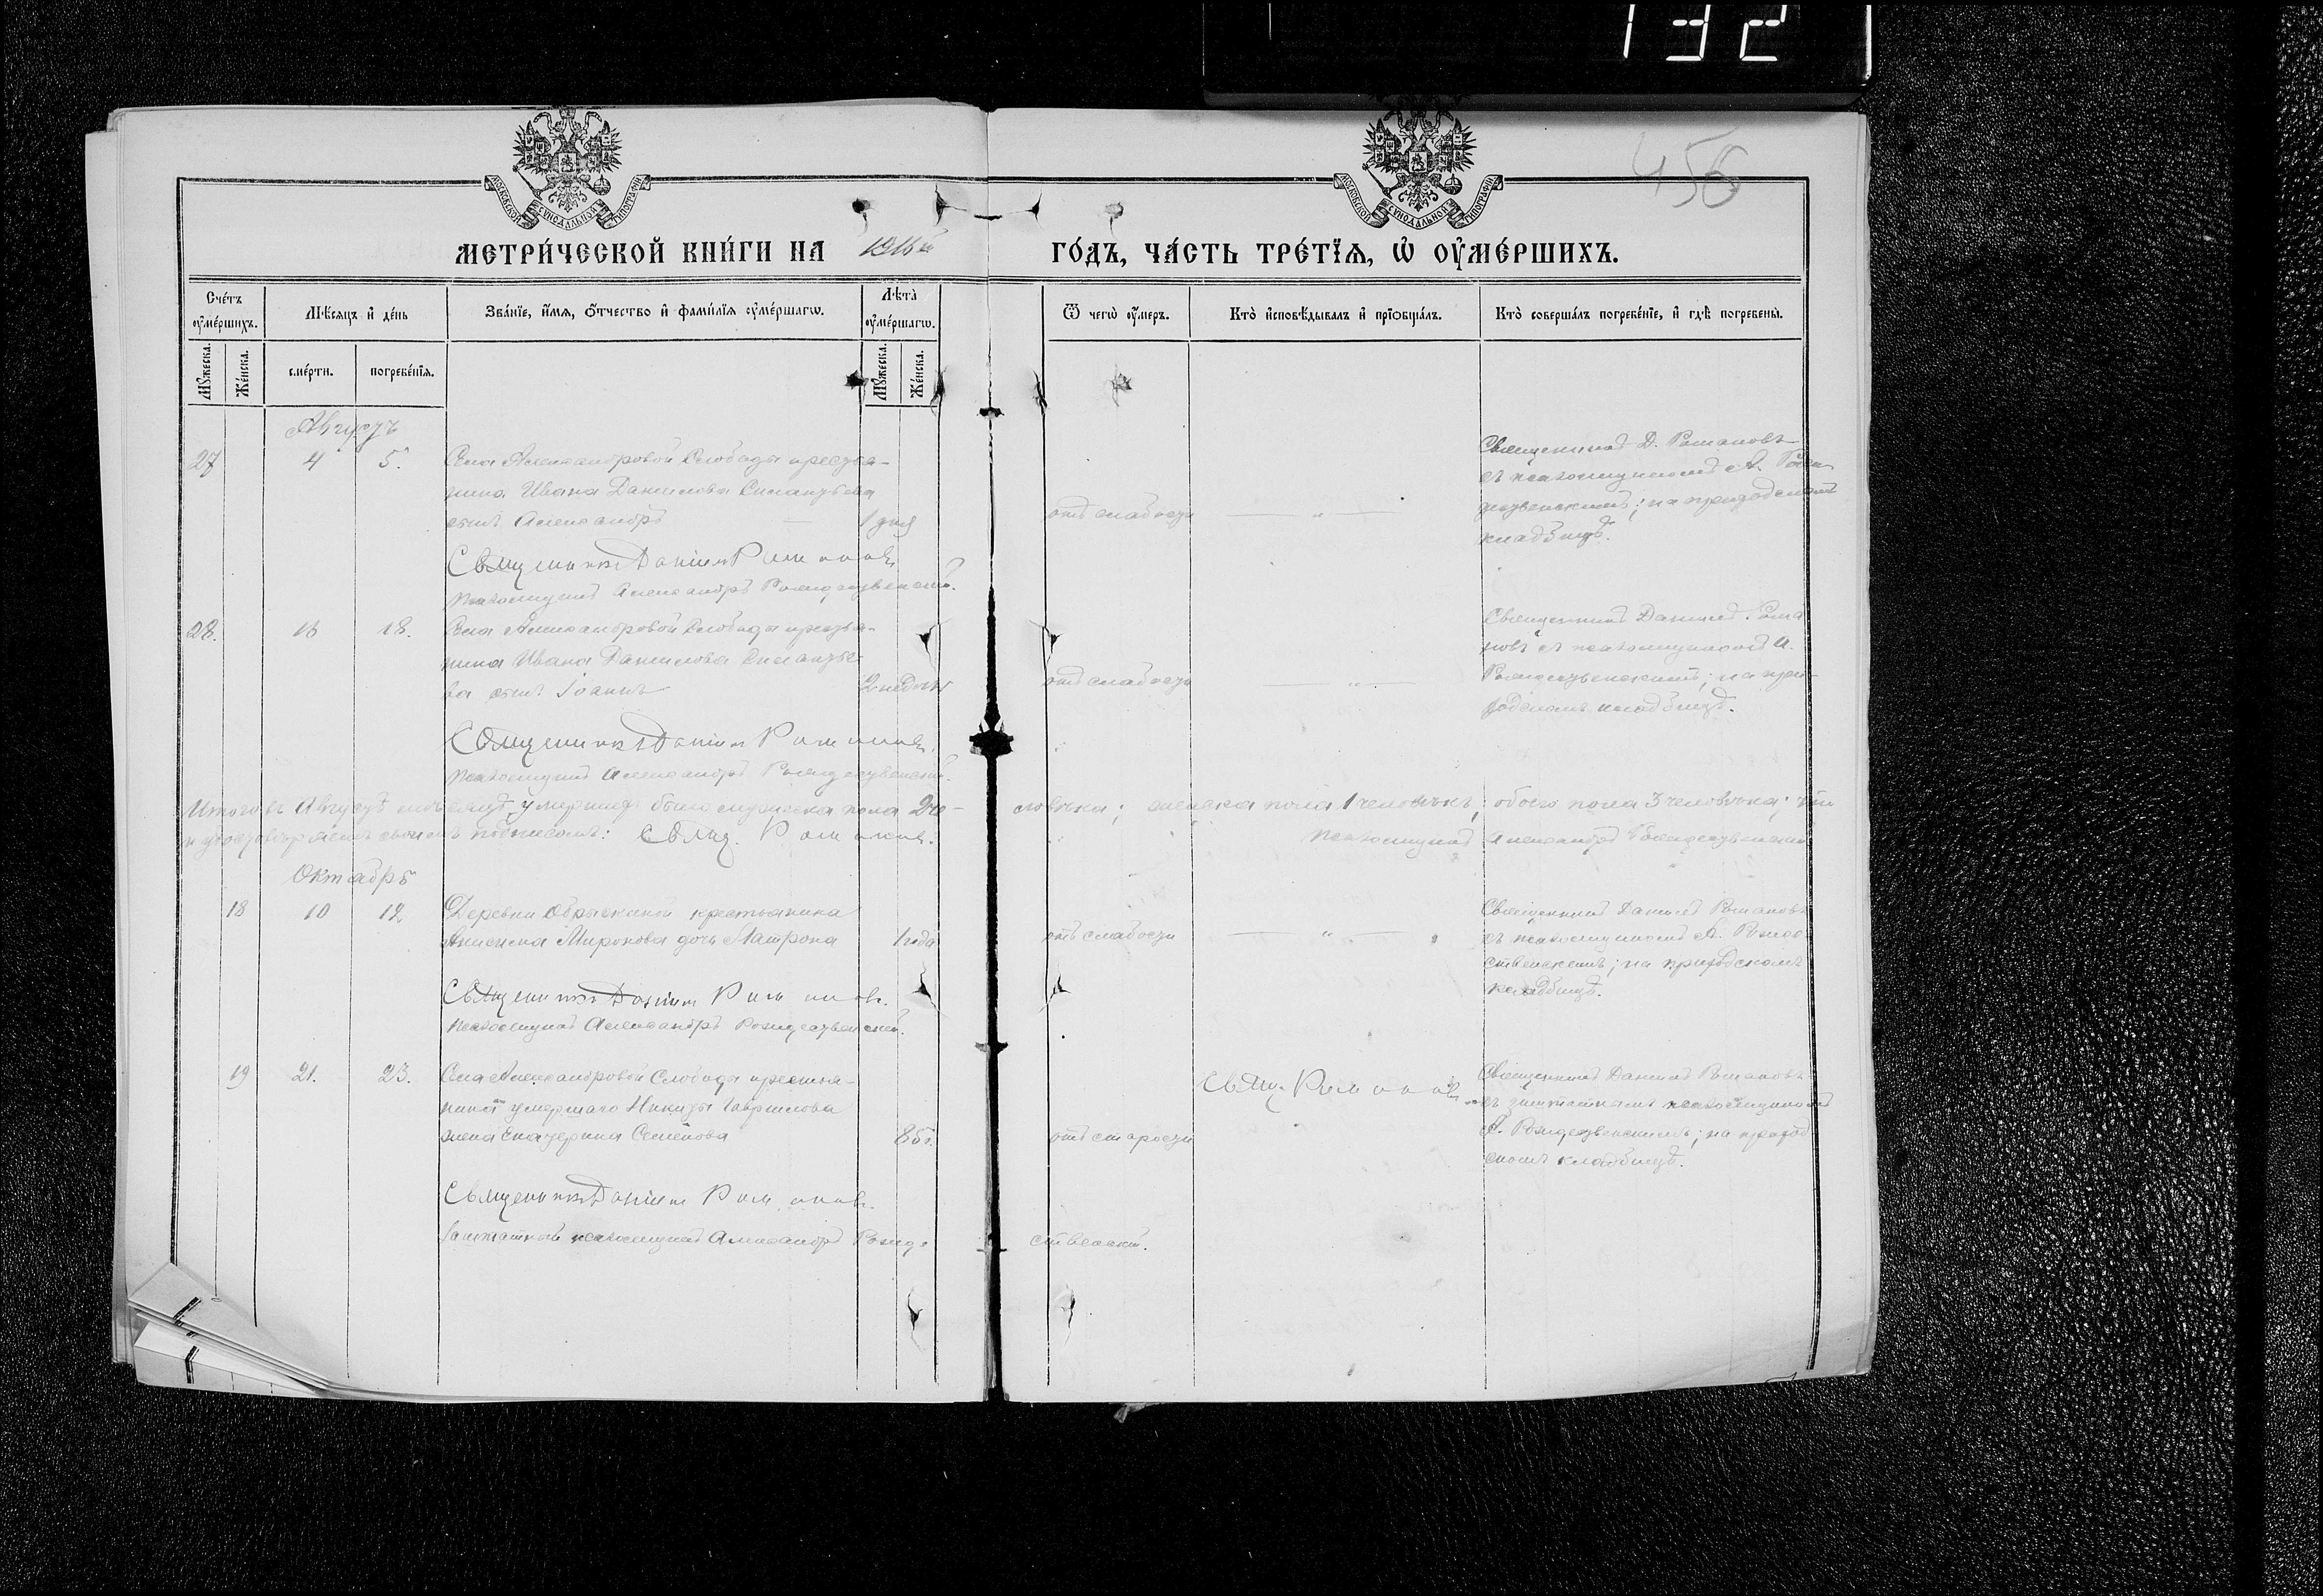 132
456
МОСКОВСКОЙ СУНОДАЛЬНОЙ ТИПОГРАФІИ
МОСКОВСКОЙ СУНОДАЛЬНОЙ ТИПОГРАФІИ
МЕТРИ́ЧЕСКОЙ КНИ́ГИ НА 1916й ГО́ДЪ, ЧА́СТЬ ТРЕ́ТЇѦ, Ѡ҆ ОУ҆МЕ́РШИХЪ.
Сче́тъ оу҆ме́ршихъ.
Мѣ́сяцъ и҆ де́нь
Зва́нїе, и҆́мѧ, ѻ҆́тчество и҆ фами́лїѧ оу҆ме́ршагѡ.
Лѣта̀ оу҆ме́ршагѡ.
Ѿ чегѡ̀ оу҆́меръ.
Кто̀ и҆сповѣ́дывалъ и҆ прїѡбща́лъ.
Кто̀ соверша́лъ погребе́нїе, и҆ гдѣ̀ погребены̀.
Мꙋ́жеска.
Же́нска.
сме́рти.
погребе́нїѧ.
Мꙋ́жеска.
Же́нска.
Августъ
27 4 5. Села Александровой Слободы крестья-
нина Ивана Данилова Силантьева
сынъ Александръ 1 дня отъ слабости — „ —
Священникъ Д. Романовъ
съ псаломщикомъ А. Рожде-
ственскимъ; на приходскомъ
кладбищѣ.
Священникъ Даніилъ Романовъ
Псаломщикъ Александръ Рождественскій.
28. 16 18. Села Александровой Слободы крестья-
нина Ивана Данилова Силантье-
ва сынъ Іоаннъ 2 недѣли отъ слабости — „ —
Священникъ Даніилъ Рома
новъ съ псаломщикомъ А.
Рождественскимъ; на при-
ходскомъ кладбищѣ.
Священникъ Даніилъ Романовъ.
Псаломщикъ Александръ Рождественскій.
Итого въ Августѣ мѣсяцѣ умершихъ было мужеска пола 2 че-ловѣка; женска пола 1 человѣкъ; обоего пола 3 человѣка; что
и удостовѣряемъ своимъ подписомъ: Свящ. Романовъ. Псаломщикъ Александръ Рождественскій
Октябрь
18 10 12 Деревни крестьянина
Анисима Миронова дочь Матрона 1 года отъ слабости — „ —
Священникъ Даніилъ Романовъ
съ псаломщикомъ А. Рожде-
ственскимъ; на приходскомъ
кладбищѣ.
Священникъ Даніилъ Романовъ.
Псаломщикъ Александръ Рождественскій.
19 21. 23. Села Александровой Слободы крестья-
нина умершаго Никиты Гаврилова
жена Екатерина Семенова 85 г. отъ старости Свящ. Романовъ
Священникъ Даніилъ Романовъ
съ заштатнымъ псаломщикомъ
А. Рождественскимъ; на приход
скомъ кладбищѣ.
Священникъ Даніилъ Романовъ.
Заштатный псаломщикъ Александръ Рожде-ственскій.